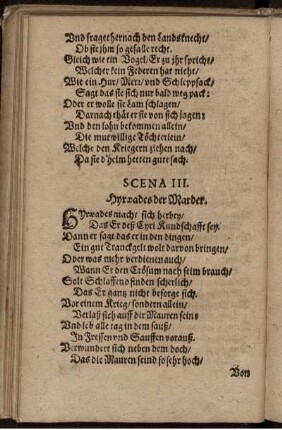 Vnd fraget hernach den Landsknecht/
Ob sie jhm so gefalle recht.
Gleich wie ein Vogel/ Er zu jhr spricht/
Welcher kein Federen hat nicht/
Wie ein Hur/ Metz/ vnd Schleppsack/
Sagt das sie sich nur bald weg pack:
Oder er wolle sie lam schlagen/
Darnach thät er sie von sich jagen:
Vnd den lohn bekommen allein/
Die mutwillige Töchterlein/
Welche den Kriegern ziehen nach/
Da sie d'heim hetten gute sach.
SCENA III.
Hyrœades der Marder.
Hyrœades mach/ sich herbey/
Das Er deß Cyri Kundschafft sey.
Dann er sagt das er in den dingen/
Ein gut Tranckgelt wolt darvon bringen/
Oder was mehr verdienen auch/
Wann Er den Crösum nach seim brauch/
Solt Schlaffend finden sicherlich/
Das Er gantz nicht besorge sich.
Vor einem Krieg/ sondern allein/
Verlaß sich auff dir Mauren sein:
Vnd leb alle tag in dem sauß/
In Fressen vnd Sauffen vorauß.
Verwundert sich neben dem doch/
Das die Mauren seind so sehr hoch/
Von